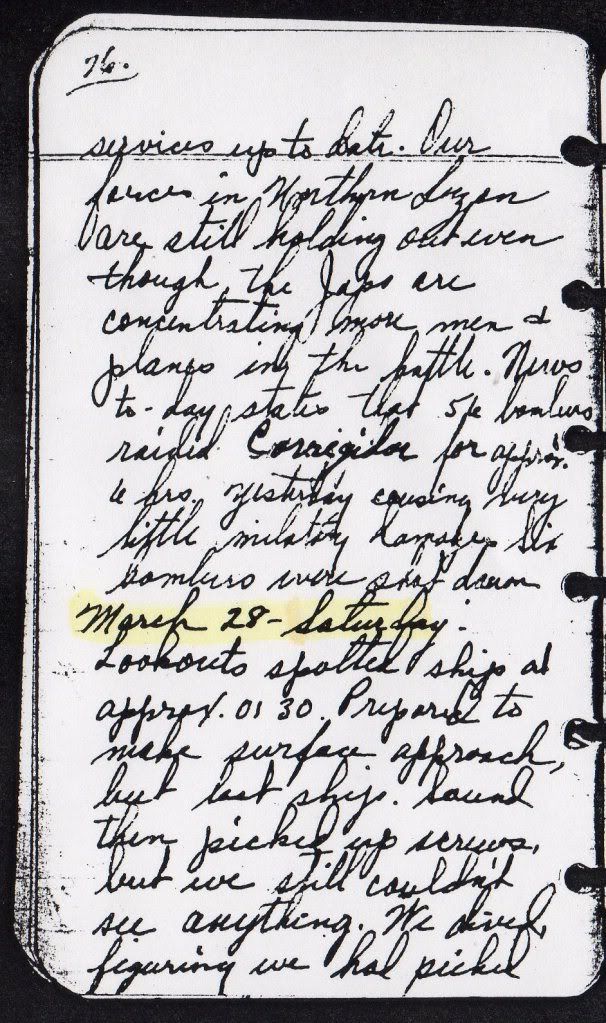 76.
services up to date. Our
forces in Northern Luzon
are still holding out even
though the Japs are
concentrating more men &
planes in the battle. News
to-day states that 54 bombers
raided Corregidor for approx.
6 hrs. yesterday causing very
little military damage. Six
bombers were shot down
March 28 - Saturday.
Lookouts spotted ship at
approx. 01 30. Prepared to
make surface approach,
but lost ship. Sound
then picked up screws,
but we still couldn't
see anything. We dived,
figuring we had picked